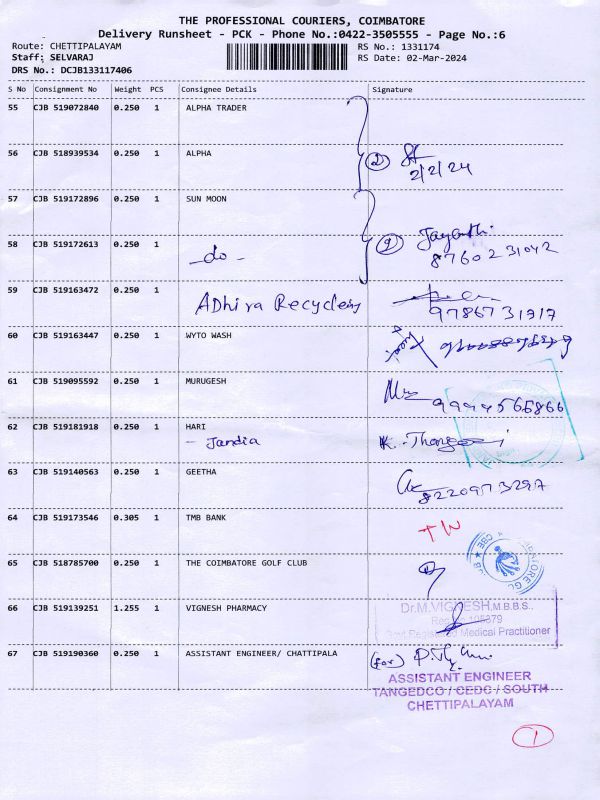 THE PROFESSIONAL COURIERS, COIMBATORE
Delivery Runsheet - PCK - Phone No.:0422-3505555 - Page No.:6
Route: CHETTIPALAYAM RS No.: 1331174
Staff: SELVARAJ RS Date: 02-Mar-2024
DRS No.: DCJB133117406
S No Consignment No Weight PCS Consignee Details Signature
55 CJB 519072840 0.250 1 ALPHA TRADER
56 CJB 518939534 0.250 1 ALPHA 2
2/2/24
57 CJB 519172896 0.250 1 SUN MOON
58 CJB 519172613 0.250 1 - do - 2 Jayanthi
8760231042
59 CJB 519163472 0.250 1 ADhira Recycling
9786731317
60 CJB 519163447 0.250 1 WYTO WASH
61 CJB 519095592 0.250 1 MURUGESH
9994565866
62 CJB 519181918 0.250 1 HARI
- Jandia
63 CJB 519140563 0.250 1 GEETHA
8220973297
64 CJB 519173546 0.305 1 TMB BANK TW
65 CJB 518785700 0.250 1 THE COIMBATORE GOLF CLUB
66 CJB 519139251 1.255 1 VIGNESH PHARMACY Dr.M.VIGNESH,M.B.B.S.,
Medical Practitioner
67 CJB 519190360 0.250 1 ASSISTANT ENGINEER/ CHATTIPALA (for)
ASSISTANT ENGINEER
TANGEDCO / CEDC / SOUTH
CHETTIPALAYAM
1